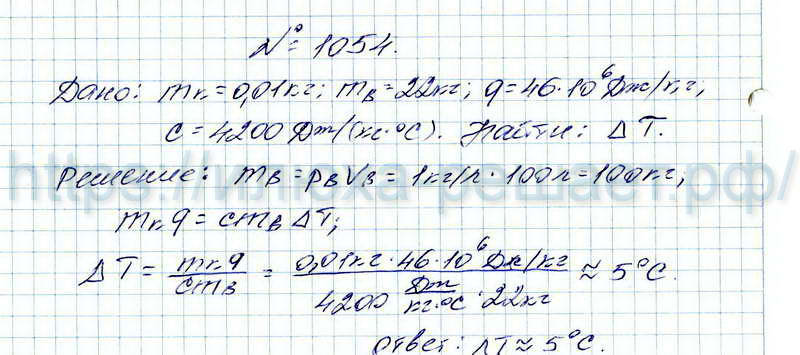 № 1054.
Дано: mк = 0,01кг; mв = 22кг; q = 46·10⁶ Дж/кг;
c = 4200 Дж/(кг·°C). Найти: ΔT.
https://илюха-решает.рф/
Решение: mв = ρвVв = 1кг/л · 100л = 100кг;
mк q = cmв ΔT;
ΔT = mк q / cmв = 0,01кг · 46·10⁶ Дж/кг / 4200 Дж/кг·°C · 22кг ≈ 5°C.
Ответ: ΔT ≈ 5°C.